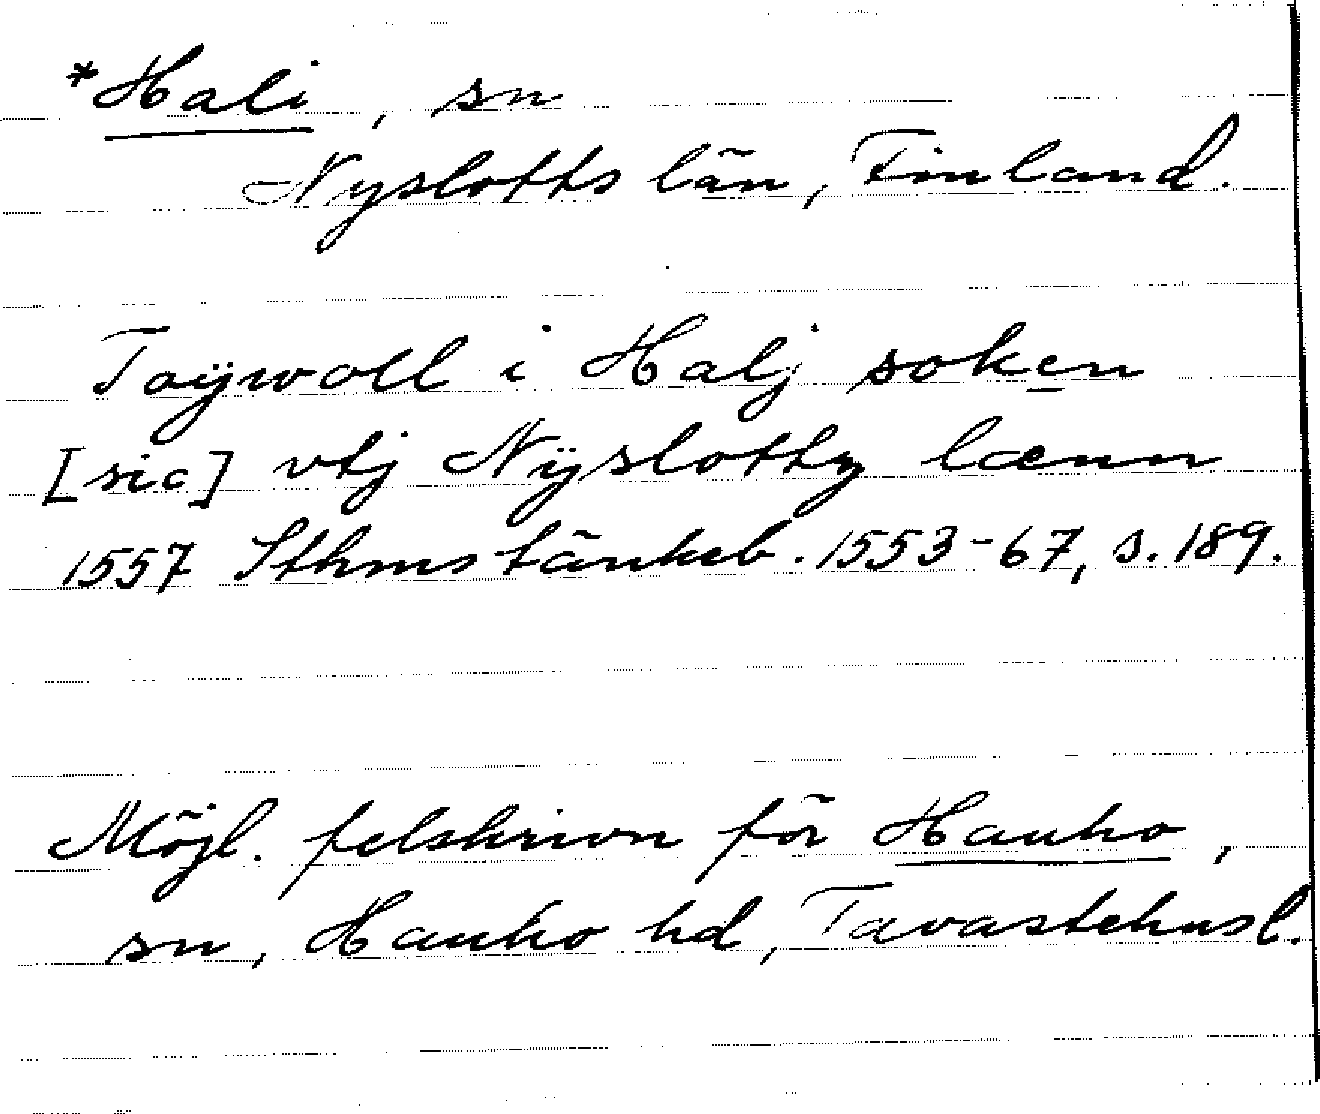 *Hali, sn
Nyslotts län, Finland.
Toÿwoll i Halj soken
[sic] vtj Nÿslottz lænn
1557 Sthms tänkeb. 1553-67, s. 189.
Möjl. felskrivn för Hauho,
sn, Hauho hd, Tavastehusl.